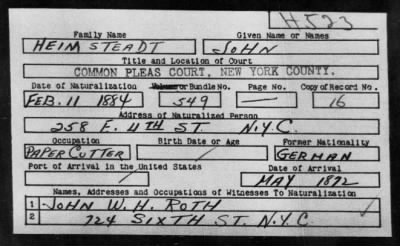 H523
Family Name Given Name or Names
HEIMSTEADT JOHN
Title and Location of Court
COMMON PLEAS COURT, NEW YORK COUNTY.
Date of Naturalization Volume or Bundle No. Page No. Copy of Record No.
FEB. 11 1884 549 — 16
Address of Naturalized Person
258 E. 4TH ST. N.Y.C.
Occupation Birth Date or Age Former Nationality
PAPER CUTTER GERMAN
Port of Arrival in the United States Date of Arrival
MAY 1872
Names, Addresses and Occupations of Witnesses To Naturalization
1 JOHN W. H. ROTH
2 724 SIXTH ST. N.Y.C.